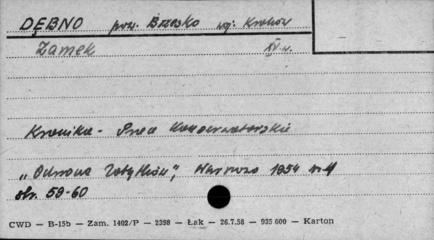 DĘBNO pow. Brzesko woj. Kraków
Zamek XV w.
Kronika - Prace Konserwatorskie
"Ochrona Zabytków", Warszawa 1954 nr 4
str. 59-60
CWD — B-15b — Zam. 1402/P — 2398 — Łak — 26.7.58 — 935 600 — Karton